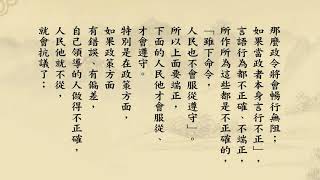 那麼政令將會暢行無阻；
如果當政者本身言行不正」，
言語行為都不正確、不端正，
所作所為這些都是不正確的，
「雖下命令，
人民也不會服從遵守」。
所以上面要端正，
下面的人民他才會服從、
才會遵守。
特別是在政策方面，
如果政策方面
有錯誤、有偏差，
自己領導的人做得不正確，
人民他就不從，
就會抗議了；